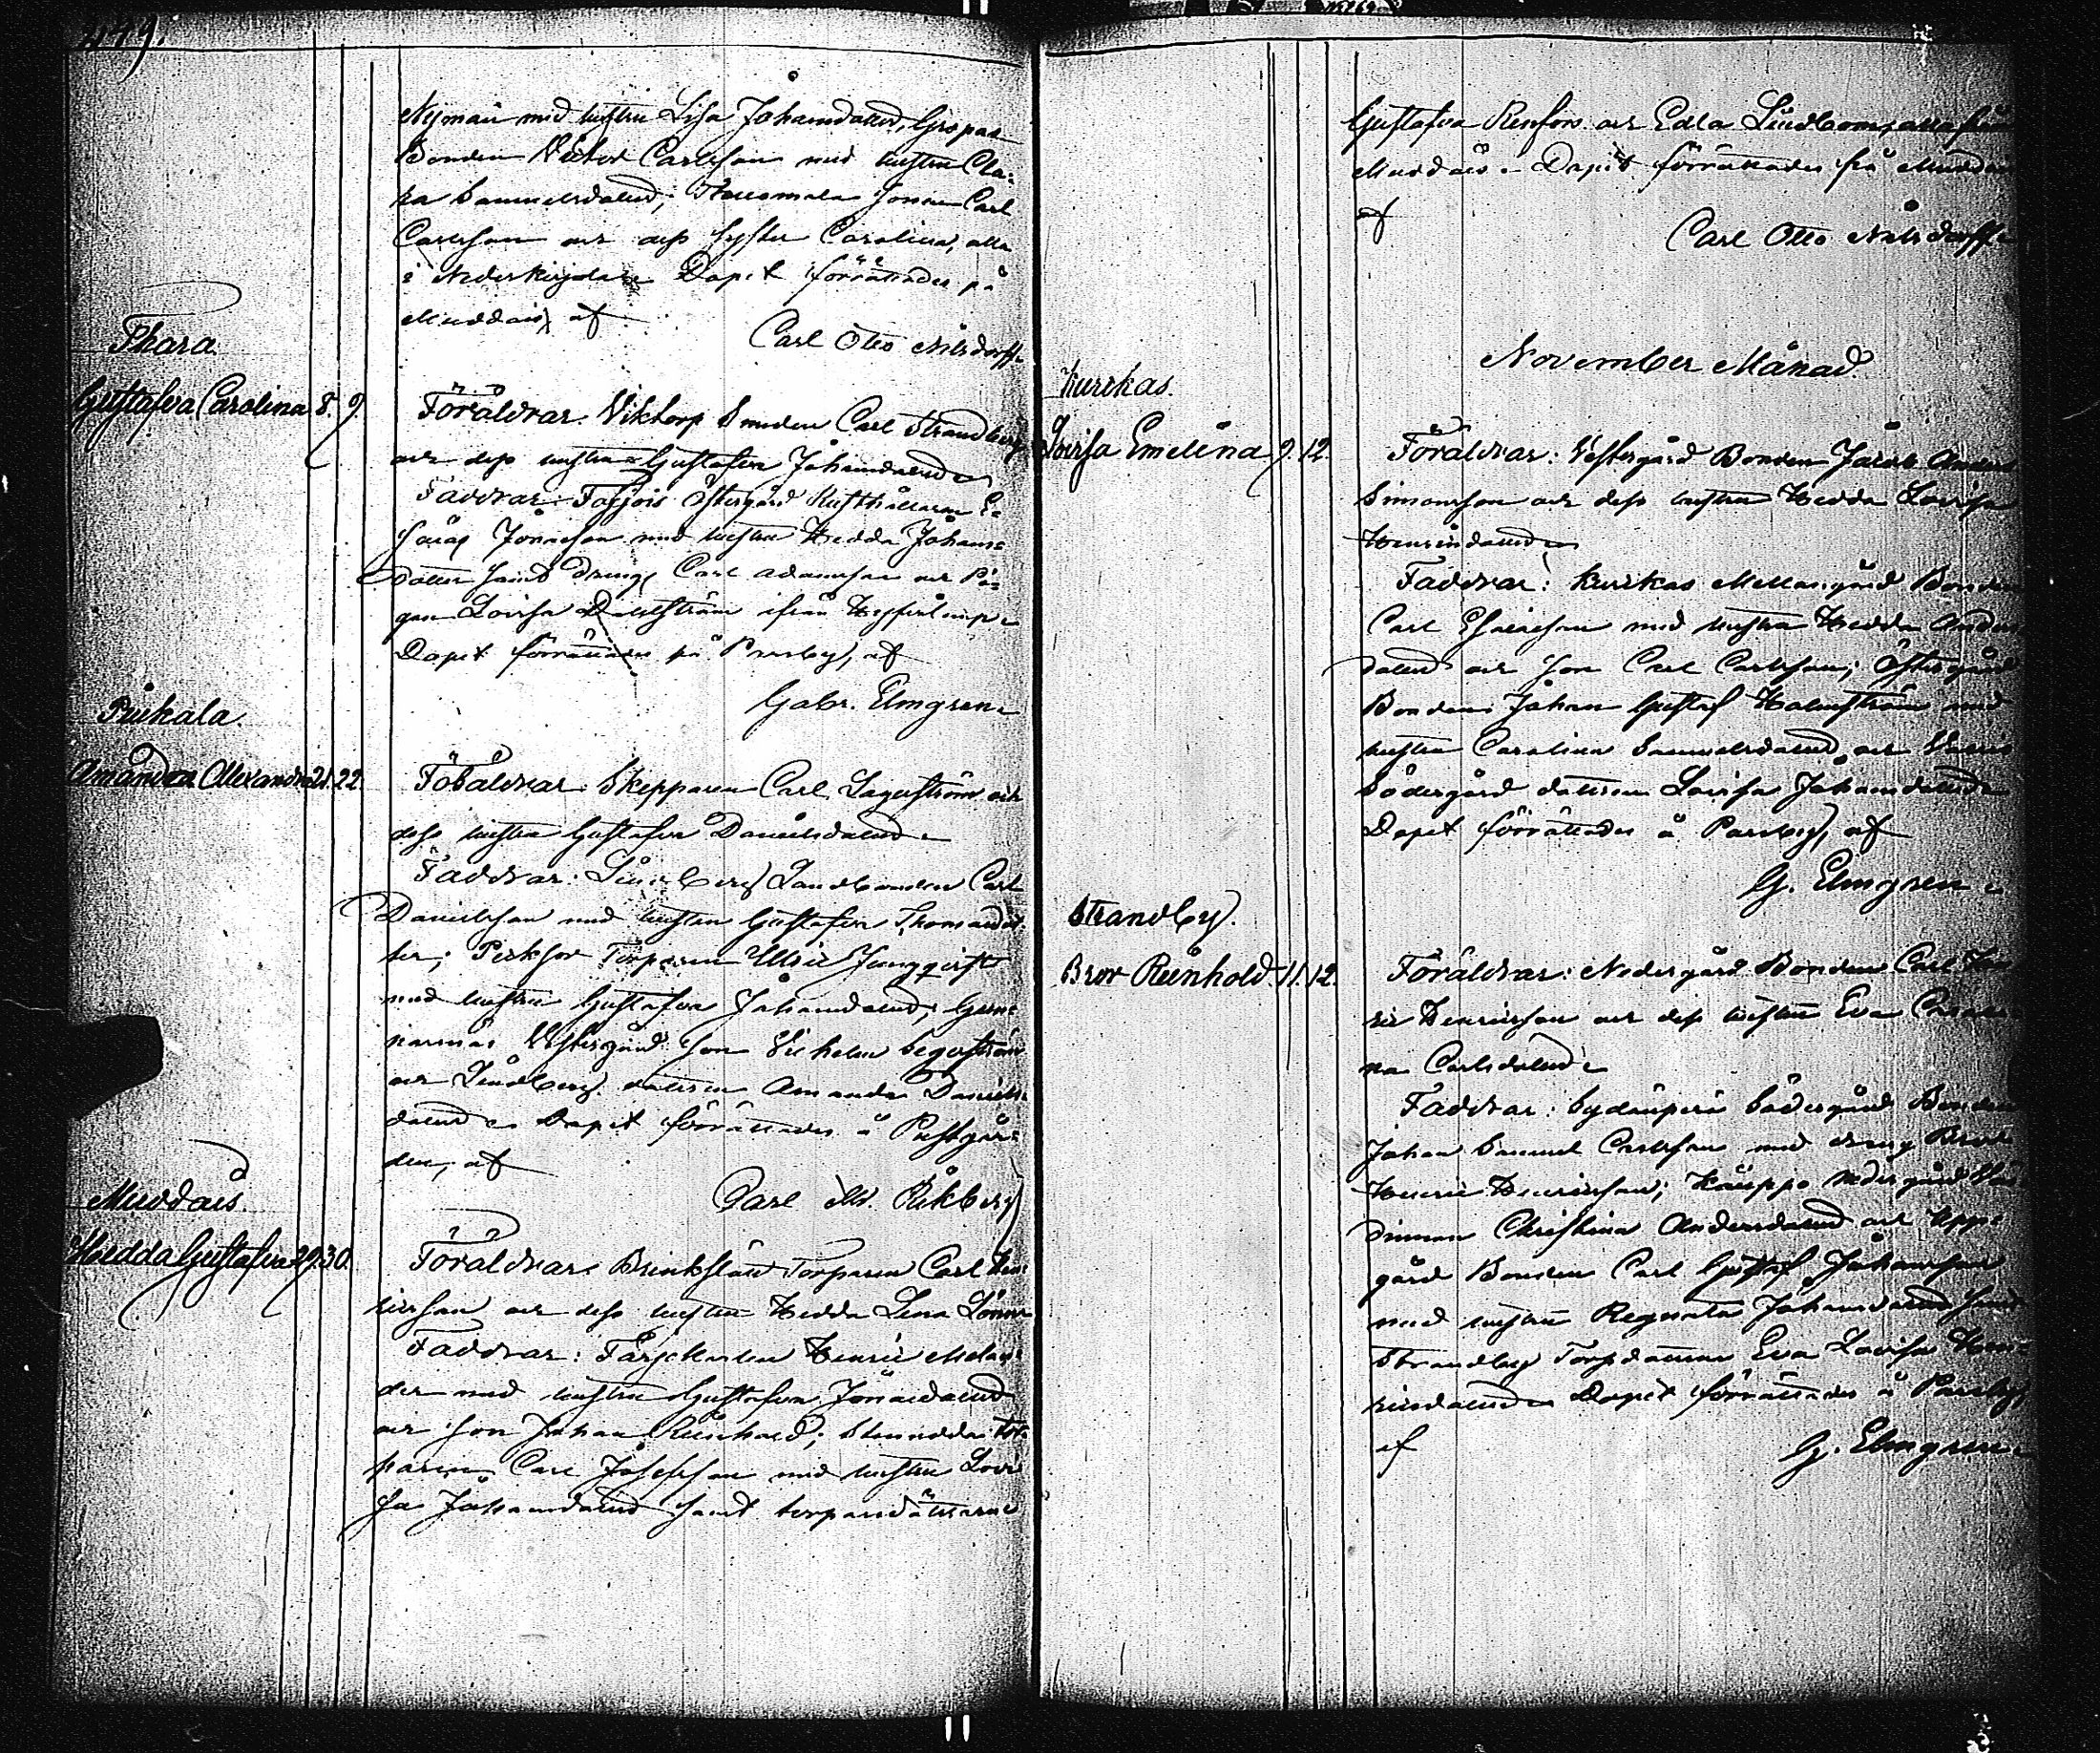 479.
Nyman med hustru Lisa Johansdotter, Gropas
Bonden Victor Carlsson med hustru Cla-
ra Samuelsdotter; sonen Carl
Carlsson och dess syster Carolina, alla
i Nederkirjala. Dopet förrättades på
Muddais, af
Carl Otto Nilsdorff.
Thara
Gustafva Carolina 8. 9.
Föräldrar. Viktorp Smeden Carl Strandberg
och dess hustru Gustafva Johansdotter
Faddrar. Östergård Rusthållaren E-
saias Jonasson med hustru Hedda Johans-
dotter samt dräng Carl Adamsson och Pi-
gan Lovisa ifrån
Dopet förrättades på Parsby, af
Gabr. Elmgren.
Piukala.
Amanda Alexandra 21. 22.
Föräldrar. Skepparen Carl Lagerström och
dess hustru Gustafva Danielsdotter.
Faddrar: Landbonden Carl
Danielsson med hustru Gustafva Thomasdot-
ter; Torparen Ulric Jungqvist
med hustru Gustafva Johansdotter; Gun-
narnäs Westergård son Vilhelm Segerström
och Lindberg dottren Amanda Daniels-
dotter. Dopet förrättades å Prestgår-
den, af
Carl M. Rikberg
Muddais.
Hedda Gustafva 29. 30.
Föräldrar. Torparen Carl Hen-
ricsson och dess hustru Hedda Lena
Faddrar: Färjekarlen Henric Melan-
der med hustru Gustafva Jonasdotter
och son Johan Reinhold; Tor-
paren Carl Josefsson med hustru Lovi-
sa Johansdotter samt torparedöttrarne
Gustafva Renfors och Edla Lindbom, alla från
Muddais. Dopet förrättades på Muddais
af
Carl Otto Nilsdorff.
November Månad
Kurkas.
Lovisa Emelina 9. 12.
Föräldrar: Vestergård Bonden Jacob Anders
Simonsson och dess hustru Hedda Lovisa
Henricsdotter
Faddrar: Kurkas Mellangård Bonden
Carl Esaiasson med hustru Hedda Anders-
dotter och son Carl Carlsson; Östergård
Bonden Johan Gustaf Holmström med
hustru Carolina Samuelsdotter och
Södergård dottren Lovisa Johansdotter
Dopet förrättades å Parsby, af
G. Elmgren.
Strandby.
Bror Reinhold. 11. 12.
Föräldrar: Nedergård Bonden Carl Hen-
ric Henricsson och dess hustru Eva Caroli-
na Carlsdotter.
Faddrar: Sydänperä Södergård Bonden
Johan Samuel Carlsson med dräng
Henric Henricsson; Nedergård
Christina Andersdotter och Upp-
gård Bonden Carl Gustaf Johansson
med hustru Regnata Johansdotter samt
Strandby Torpdottren Eva Lovisa Hen-
ricsdotter. Dopet förrättades å Parsby,
af
G. Elmgren.